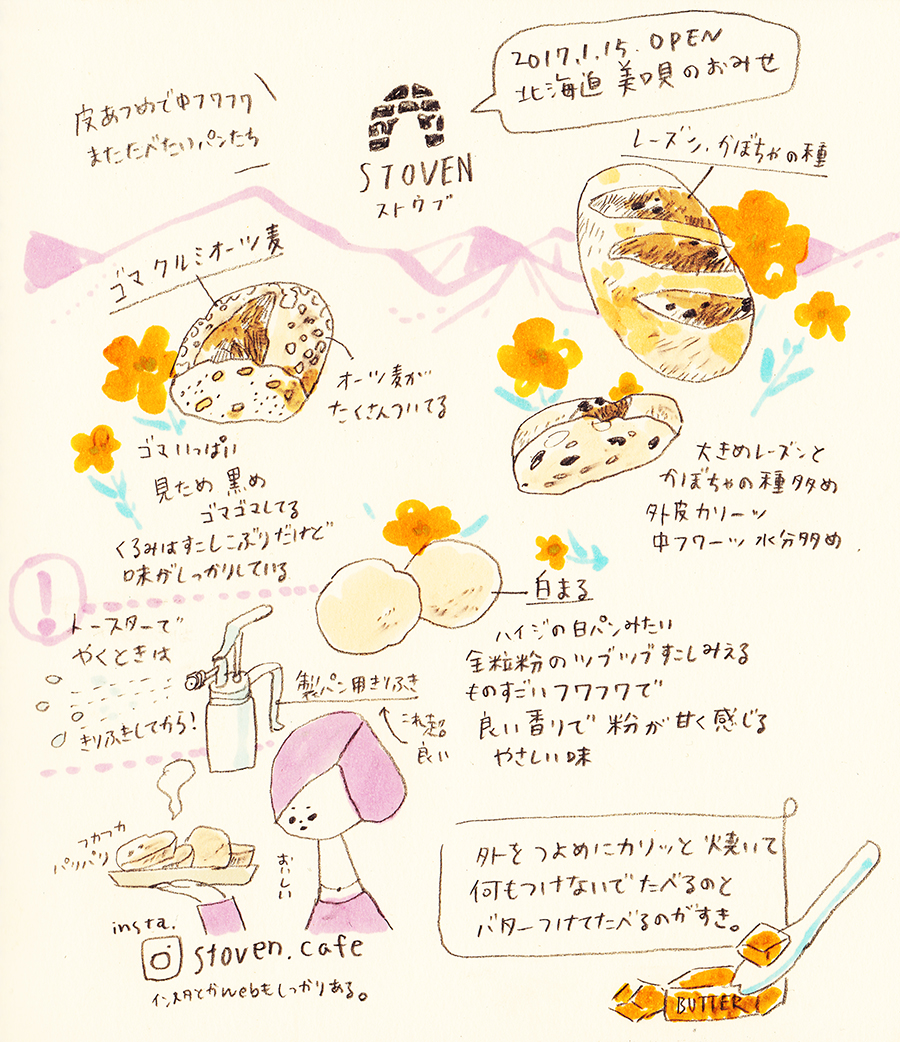 2017.1.15. OPEN
北海道 美唄のおみせ
皮あつめで中フワフワ
またたべたいパンたち
STOVEN
ストウブ
レーズン、かぼちゃの種
ゴマクルミオーツ麦
オーツ麦が
たくさんついてる
ゴマいっぱい
見ため 黒め
ゴマゴマしてる
くるみはすこしこぶりだけど
味がしっかりしている
大きめレーズンと
かぼちゃの種多め
外皮カリーッ
中フワーッ 水分多め.
白まる
ハイジの白パンみたい
全粒粉のツブツブすこしみえる
ものすごいフワフワで
良い香りで 粉が甘く感じる
やさしい味
!
トースターで
やくときは
きりふきしてから!
製パン用きりふき
これ超
良い
フカフカ
パリパリ
おいしい
外をつよめにカリッと焼いて
何もつけないでたべるのと
バターつけてたべるのがすき。
BUTTER
insta.
stoven.cafe
インスタとかwebもしっかりある。